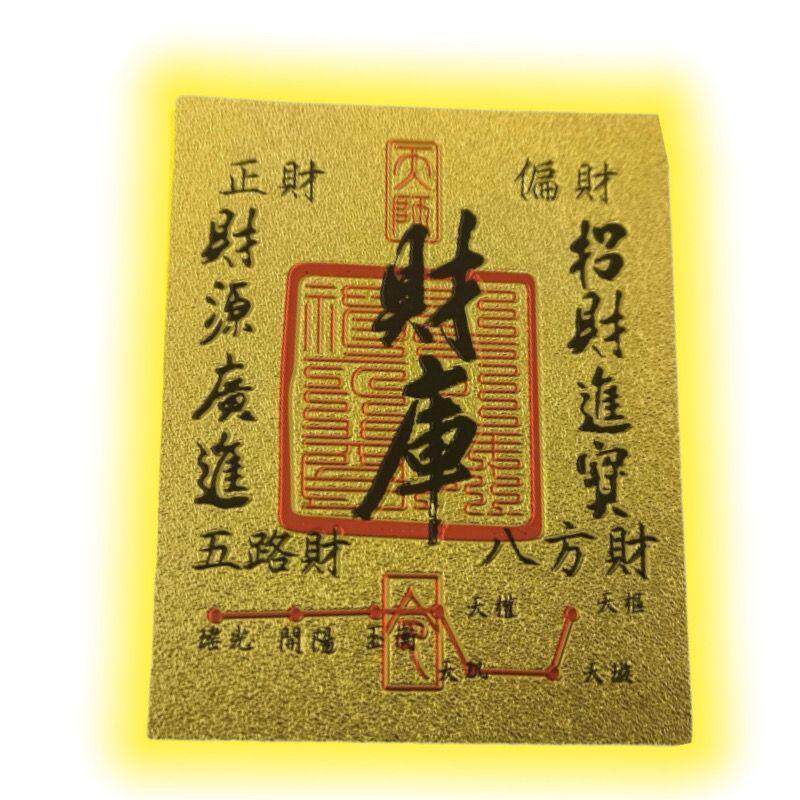 天師
偏財
正財
招財進寶
財庫
財源廣進
八方財
五路財
天樞
天權
瑤光 開陽 玉衡
天璇
天璣